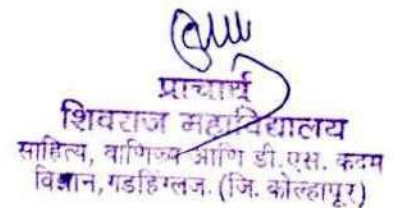 प्राचार्य
शिवराज महाविद्यालय
साहित्य, वाणिज्य आणि डी.एस. कदम
विज्ञान, गडहिंग्लज. (जि. कोल्हापूर)